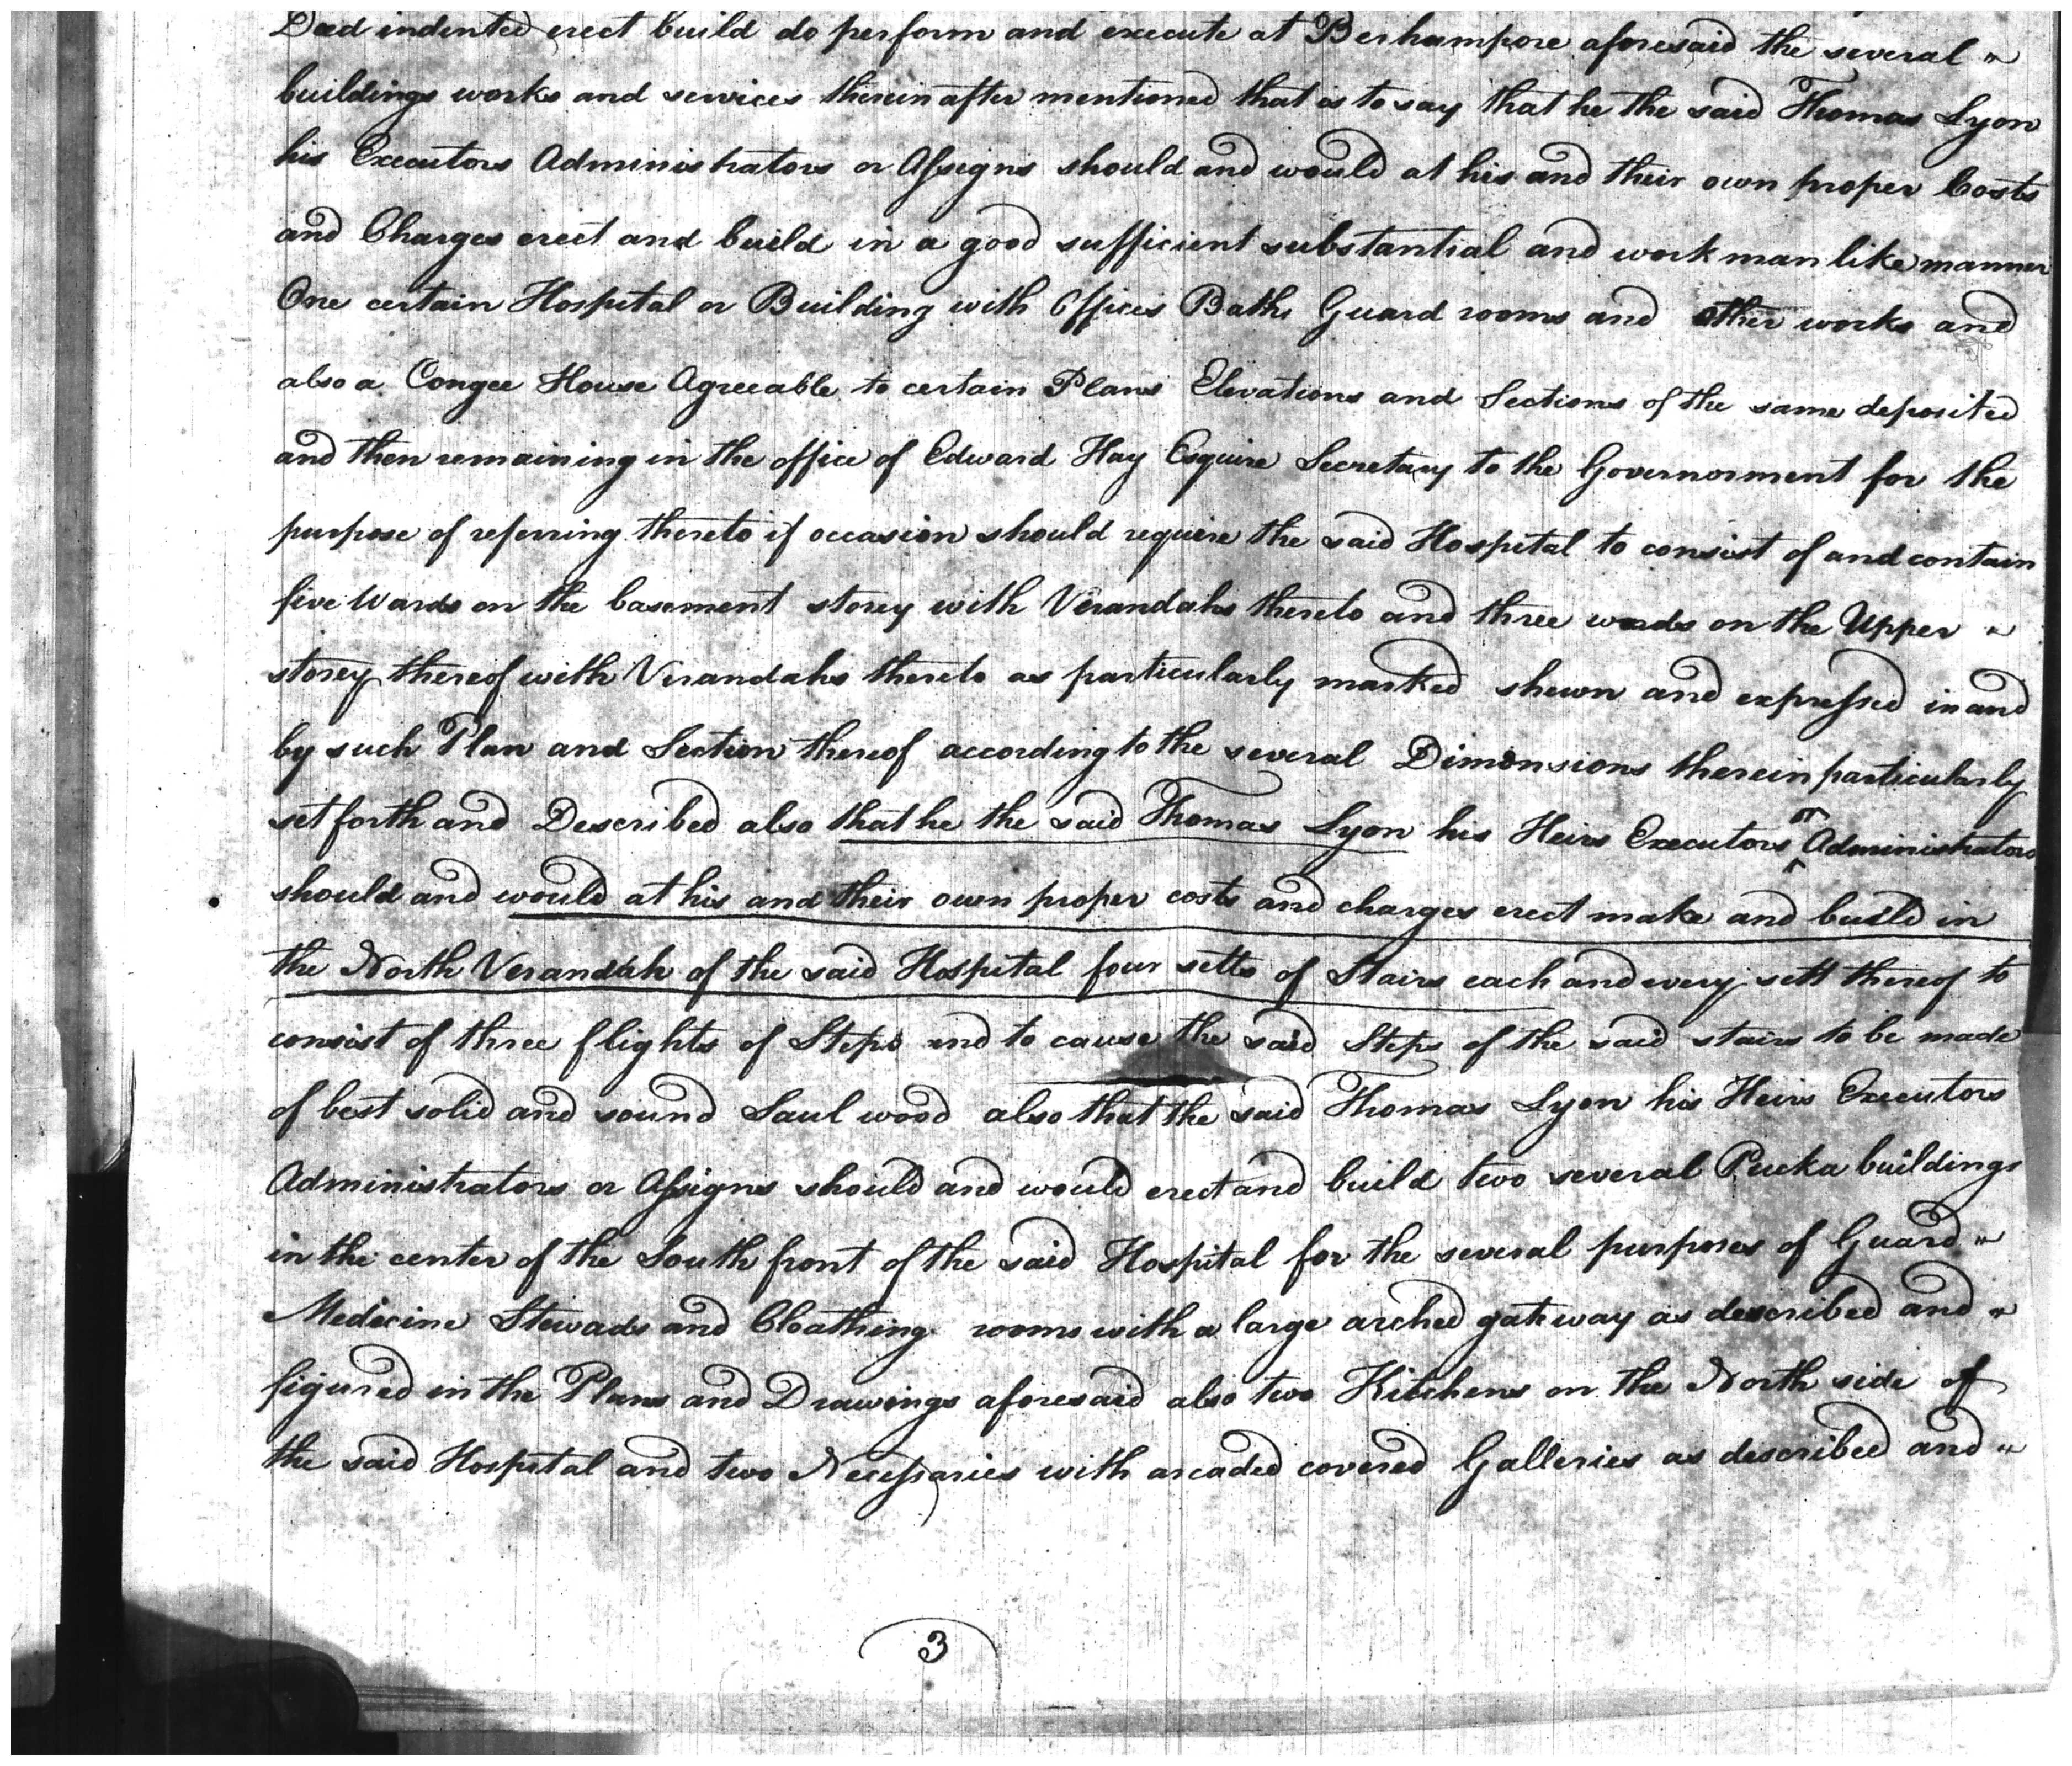 Deed indented erect build do perform and execute at Berhampore aforesaid the several "
buildings works and services thereinafter mentioned that is to say that he the said Thomas Lyon
his Executors Administrators or Assigns should and would at his and their own proper Costs
and Charges erect and build in a good sufficient substantial and workmanlike manner
One certain Hospital or Building with Offices Baths Guard rooms and other works and
also a Congee House Agreeable to certain Plans Elevations and Sections of the same deposited
and then remaining in the office of Edward Hay Esquire Secretary to the Governorment for the
purpose of referring thereto if occasion should require the said Hospital to consist of and contain
five Wards on the basement storey with Verandahs thereto and three wards on the Upper "
storey thereof with Verandahs thereto as particularly marked shewn and expressed in and
by such Plan and Section thereof according to the several Dimensions therein particularly
set forth and Described also that he the said Thomas Lyon his Heirs Executors or Administrators
should and would at his and their own proper costs and charges erect make and build in
the North Verandah of the said Hospital four setts of Stairs each and every sett thereof to
consist of three flights of Steps and to cause the said Steps of the said stairs to be made
of best solid and sound Saul wood also that the said Thomas Lyon his Heirs Executors
Administrators or Assigns should and would erect and build two several Pucka buildings
in the center of the South front of the said Hospital for the several purposes of Guard "
Medicine Stewads and Cloathing rooms with a large arched gateway as described and "
figured in the Plans and Drawings aforesaid also two Kitchens on the North side of
the said Hospital and two Necessaries with arcaded covered Galleries as described and "
3